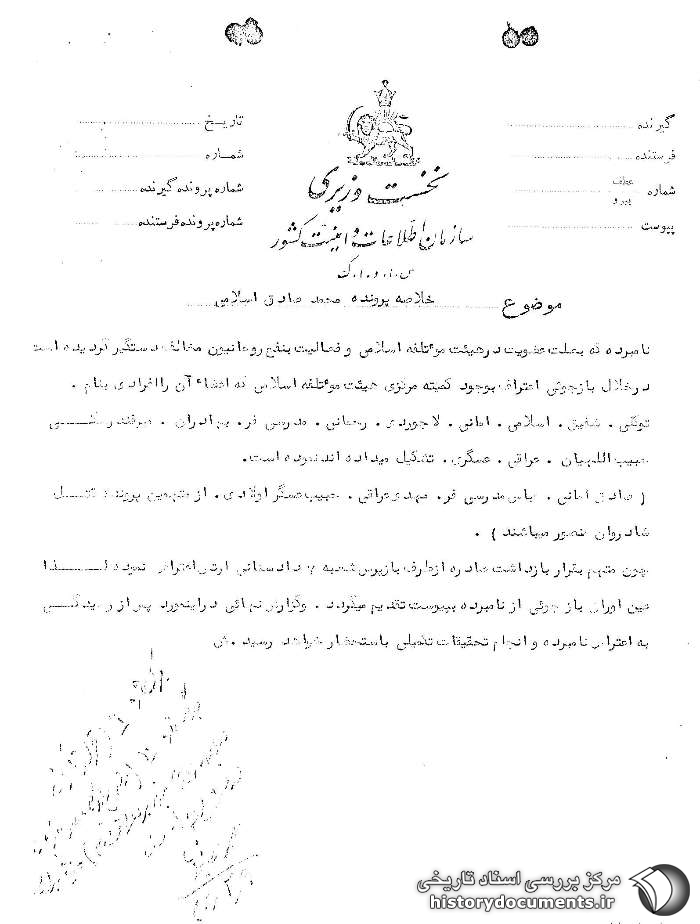 گیرنده
فرستنده
شماره
عطف
پیرو
پیوست
تاریخ
شماره
شماره پرونده گیرنده
شماره پرونده فرستنده
نخست وزیری
سازمان اطلاعات و امنیت کشور
س.ا.و.ا.ک
موضوع خلاصه پرونده محمد صادق اسلامی
نامبرده که بعلت عضویت در هیئت موئتلفه اسلامی و فعالیت بنفع روحانیون مخالف دستگیر گردیده است
در خلال بازجوئی اعتراف بوجود کمیته مرکزی هیئت موئتلفه اسلامی که اعضاء آن را افرادی بنام .
توکلی . شفیق . اسلامی . امانی . لاجوردی . رحمانی . مدرسی فر . بهادران .
حبیب اللهیان . عراقی . عسگری . تشکیل میداده اند نموده است.
( صادق امانی . عباس مدرسی فر . مهدی عراقی . حبیب عسگر اولادی . از متهمین پرونده قتل
شادروان منصور میباشند ) .
چون متهم بقرار بازداشت صادره از طرف بازپرس شعبه ۷ دادستانی ارتش اعتراض نموده لذا
عین اوراق بازجوئی از نامبرده بپیوست تقدیم میگردد . و گزارش نهائی در اینمورد پس از رسیدگی
به اعتراض نامبرده و انجام تحقیقات تکمیلی باستحضار خواهد رسید .ش
مرکز بررسی اسناد تاریخی
historydocuments.ir